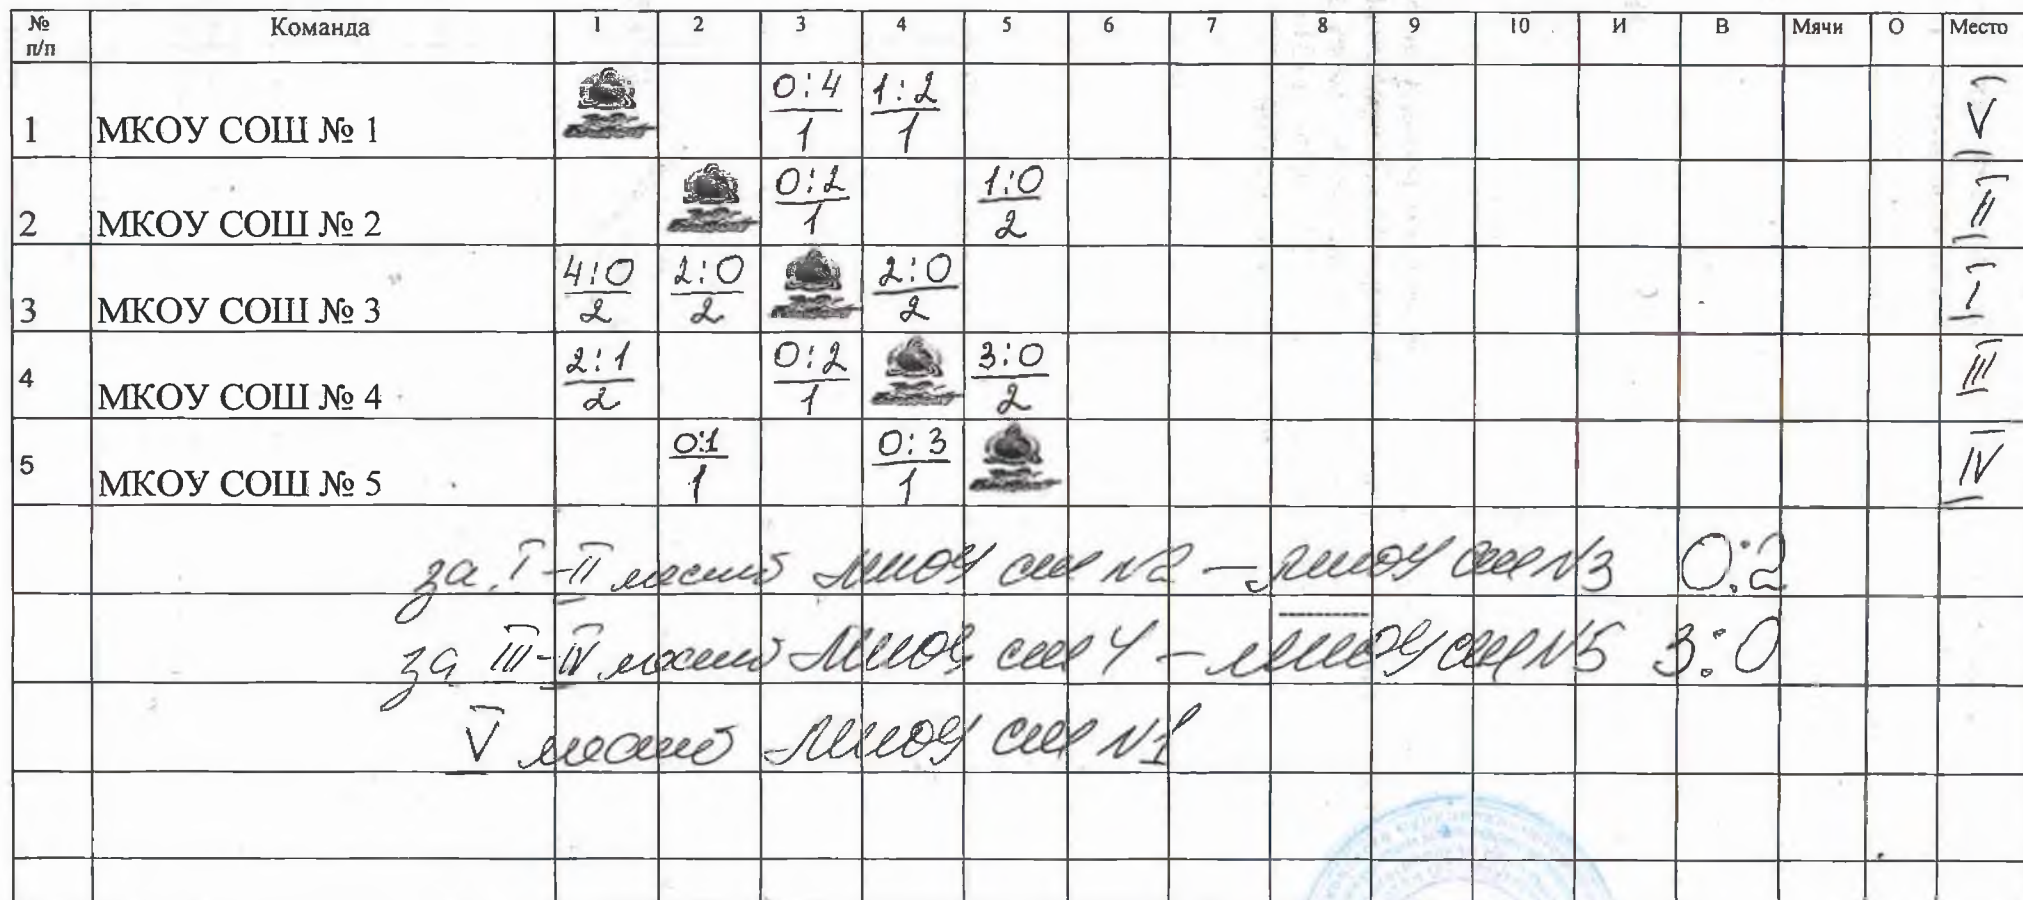 № п/п Команда 1 2 3 4 5 6 7 8 9 10 И В Мячи О Место
1 МКОУ СОШ № 1 0:4/1 1:2/1 V
2 МКОУ СОШ № 2 0:2/1 1:0/2 II
3 МКОУ СОШ № 3 4:0/2 2:0/2 2:0/2 I
4 МКОУ СОШ № 4 2:1/2 0:2/1 3:0/2 III
5 МКОУ СОШ № 5 0:1/1 0:3/1 IV
за I-II место МКОУ СОШ №2 – МКОУ СОШ №3 0:2
за III-IV место МКОУ СОШ 4 – МКОУ СОШ №5 3:0
V место – МКОУ СОШ №1